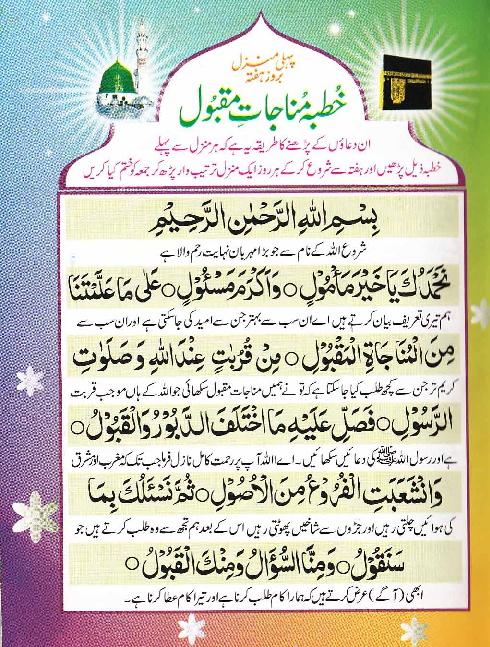 پہلی منزل
بروز ہفتہ
خطبہ مناجات مقبول
ان دعاؤں کے پڑھنے کا طریقہ یہ ہے کہ ہر منزل سے پہلے
خطبہ ذیل پڑھیں اور ہفتہ سے شروع کر کے ہر روز ایک منزل ترتیب وار پڑھ کر جمعہ کو ختم کیا کریں
بِسْمِ اللهِ الرَّحْمٰنِ الرَّحِيْمِ
شروع اللہ کے نام سے جو بڑا مہربان نہایت رحم والا ہے
نَحْمَدُكَ يَا خَيْرَ مَأْمُوْلٍ ○ وَاَكْرَمَ مَسْئُوْلٍ ○ عَلٰى مَا عَلَّمْتَنَا
ہم تیری تعریف بیان کرتے ہیں اے ان سب سے بہتر جن سے امید کی جا سکتی ہے اور ان سب سے
مِنَ الْمُنَاجَاةِ الْمَقْبُوْلِ ○ مِنْ قُرُبٰتٍ عِنْدَ اللهِ وَصَلَوٰتِ
کریم تر جن سے کچھ طلب کیا جا سکتا ہے کہ تو نے ہمیں مناجات مقبول سکھائی جو اللہ کے ہاں موجب قربت
الرَّسُوْلِ ○ فَصَلِّ عَلَيْهِ مَا اخْتَلَفَ الدَّبُوْرُ وَالْقَبُوْلُ ○
ہے اور رسول اللہ ﷺ کی دعائیں سکھائیں۔ اے اللہ آپ پر رحمت کامل نازل فرما جب تک کہ مغرب اور مشرق
وَانْشَعَبَتِ الْفُرُوْعُ مِنَ الْاُصُوْلِ ○ ثُمَّ نَسْئَلُكَ بِمَا
کی ہوائیں چلتی رہیں اور جڑوں سے شاخیں پھوٹتی رہیں اس کے بعد ہم تجھ سے وہ طلب کرتے ہیں جو
سَنَقُوْلُ ○ وَمِنَّا السُّؤَالُ وَمِنْكَ الْقَبُوْلُ ○
ابھی (آگے) عرض کرتے ہیں کہ ہمارا کام طلب کرنا ہے اور تیرا کام عطا کرنا ہے۔